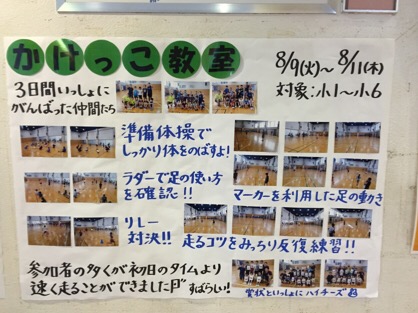 かけっこ教室
8/9(火)～8/11(木)
対象:小1～小6
3日間いっしょに
がんばった仲間たち
準備体操で
しっかり体をのばすよ!
ラダーで足の使い方
を確認!!
マーカーを利用した足の動き
リレー
対決!!
走るコツをみっちり反復練習!!
参加者の多くが初日のタイムより
速く走ることができました
すばらしい!
賞状といっしょにハイチーズ